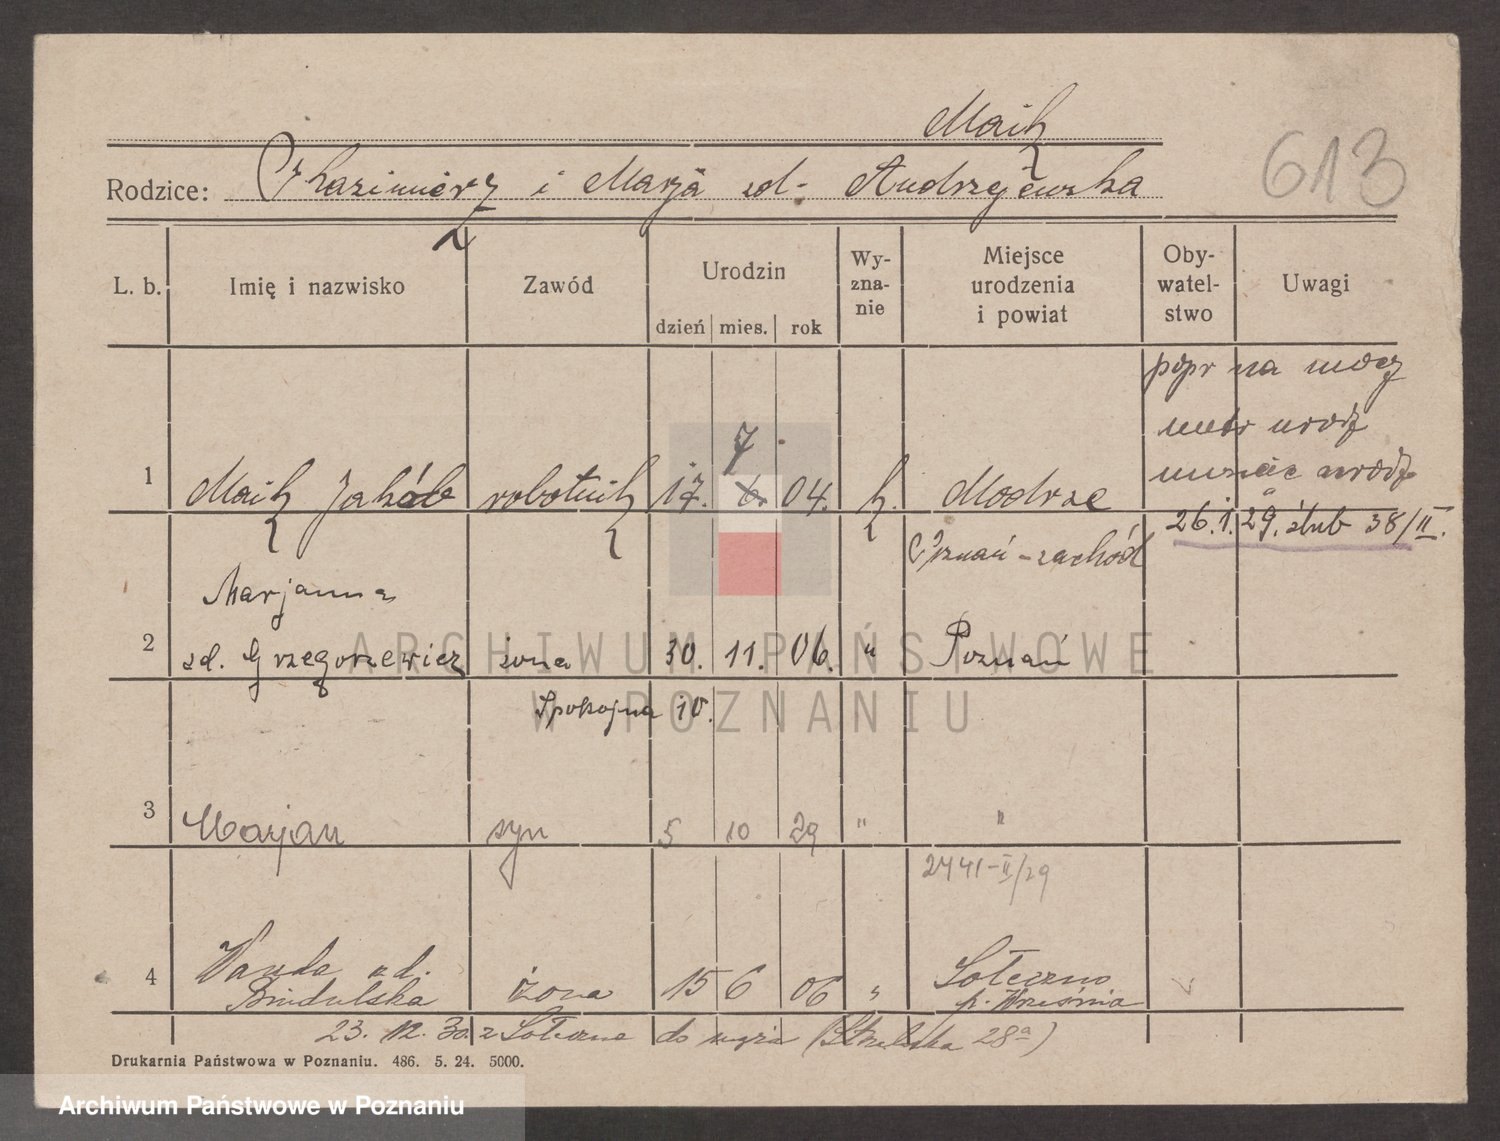 Maik
613
Rodzice: Kazimierz i Marja zd. Andrzejewska
L. b. Imię i nazwisko Zawód Urodzin Wy-zna-nie Miejsce urodzenia i powiat Oby-watel-stwo Uwagi
dzień mies. rok
popr na mocy
metr urodz
urodz
7
1 Maik Jakób robotnik 17. 6 04. k. Modrze
26.1.29. ślub 38/II.
Poznań-zachód
Marjanna
2 zd. Grzegorzewicz żona 30. 11. 06. " Poznań
Spokojna 10.
3 Marjan syn 5 10 29 " "
2441-II/29
Wanda zd. Sołeczno
4 żona 15 6 06 " p. Września
23. 12. 30. z Sołeczna do męża (Strzelecka 28a)
Drukarnia Państwowa w Poznaniu. 486. 5. 24. 5000.
ARCHIWUM PAŃSTWOWE
W POZNANIU
Archiwum Państwowe w Poznaniu